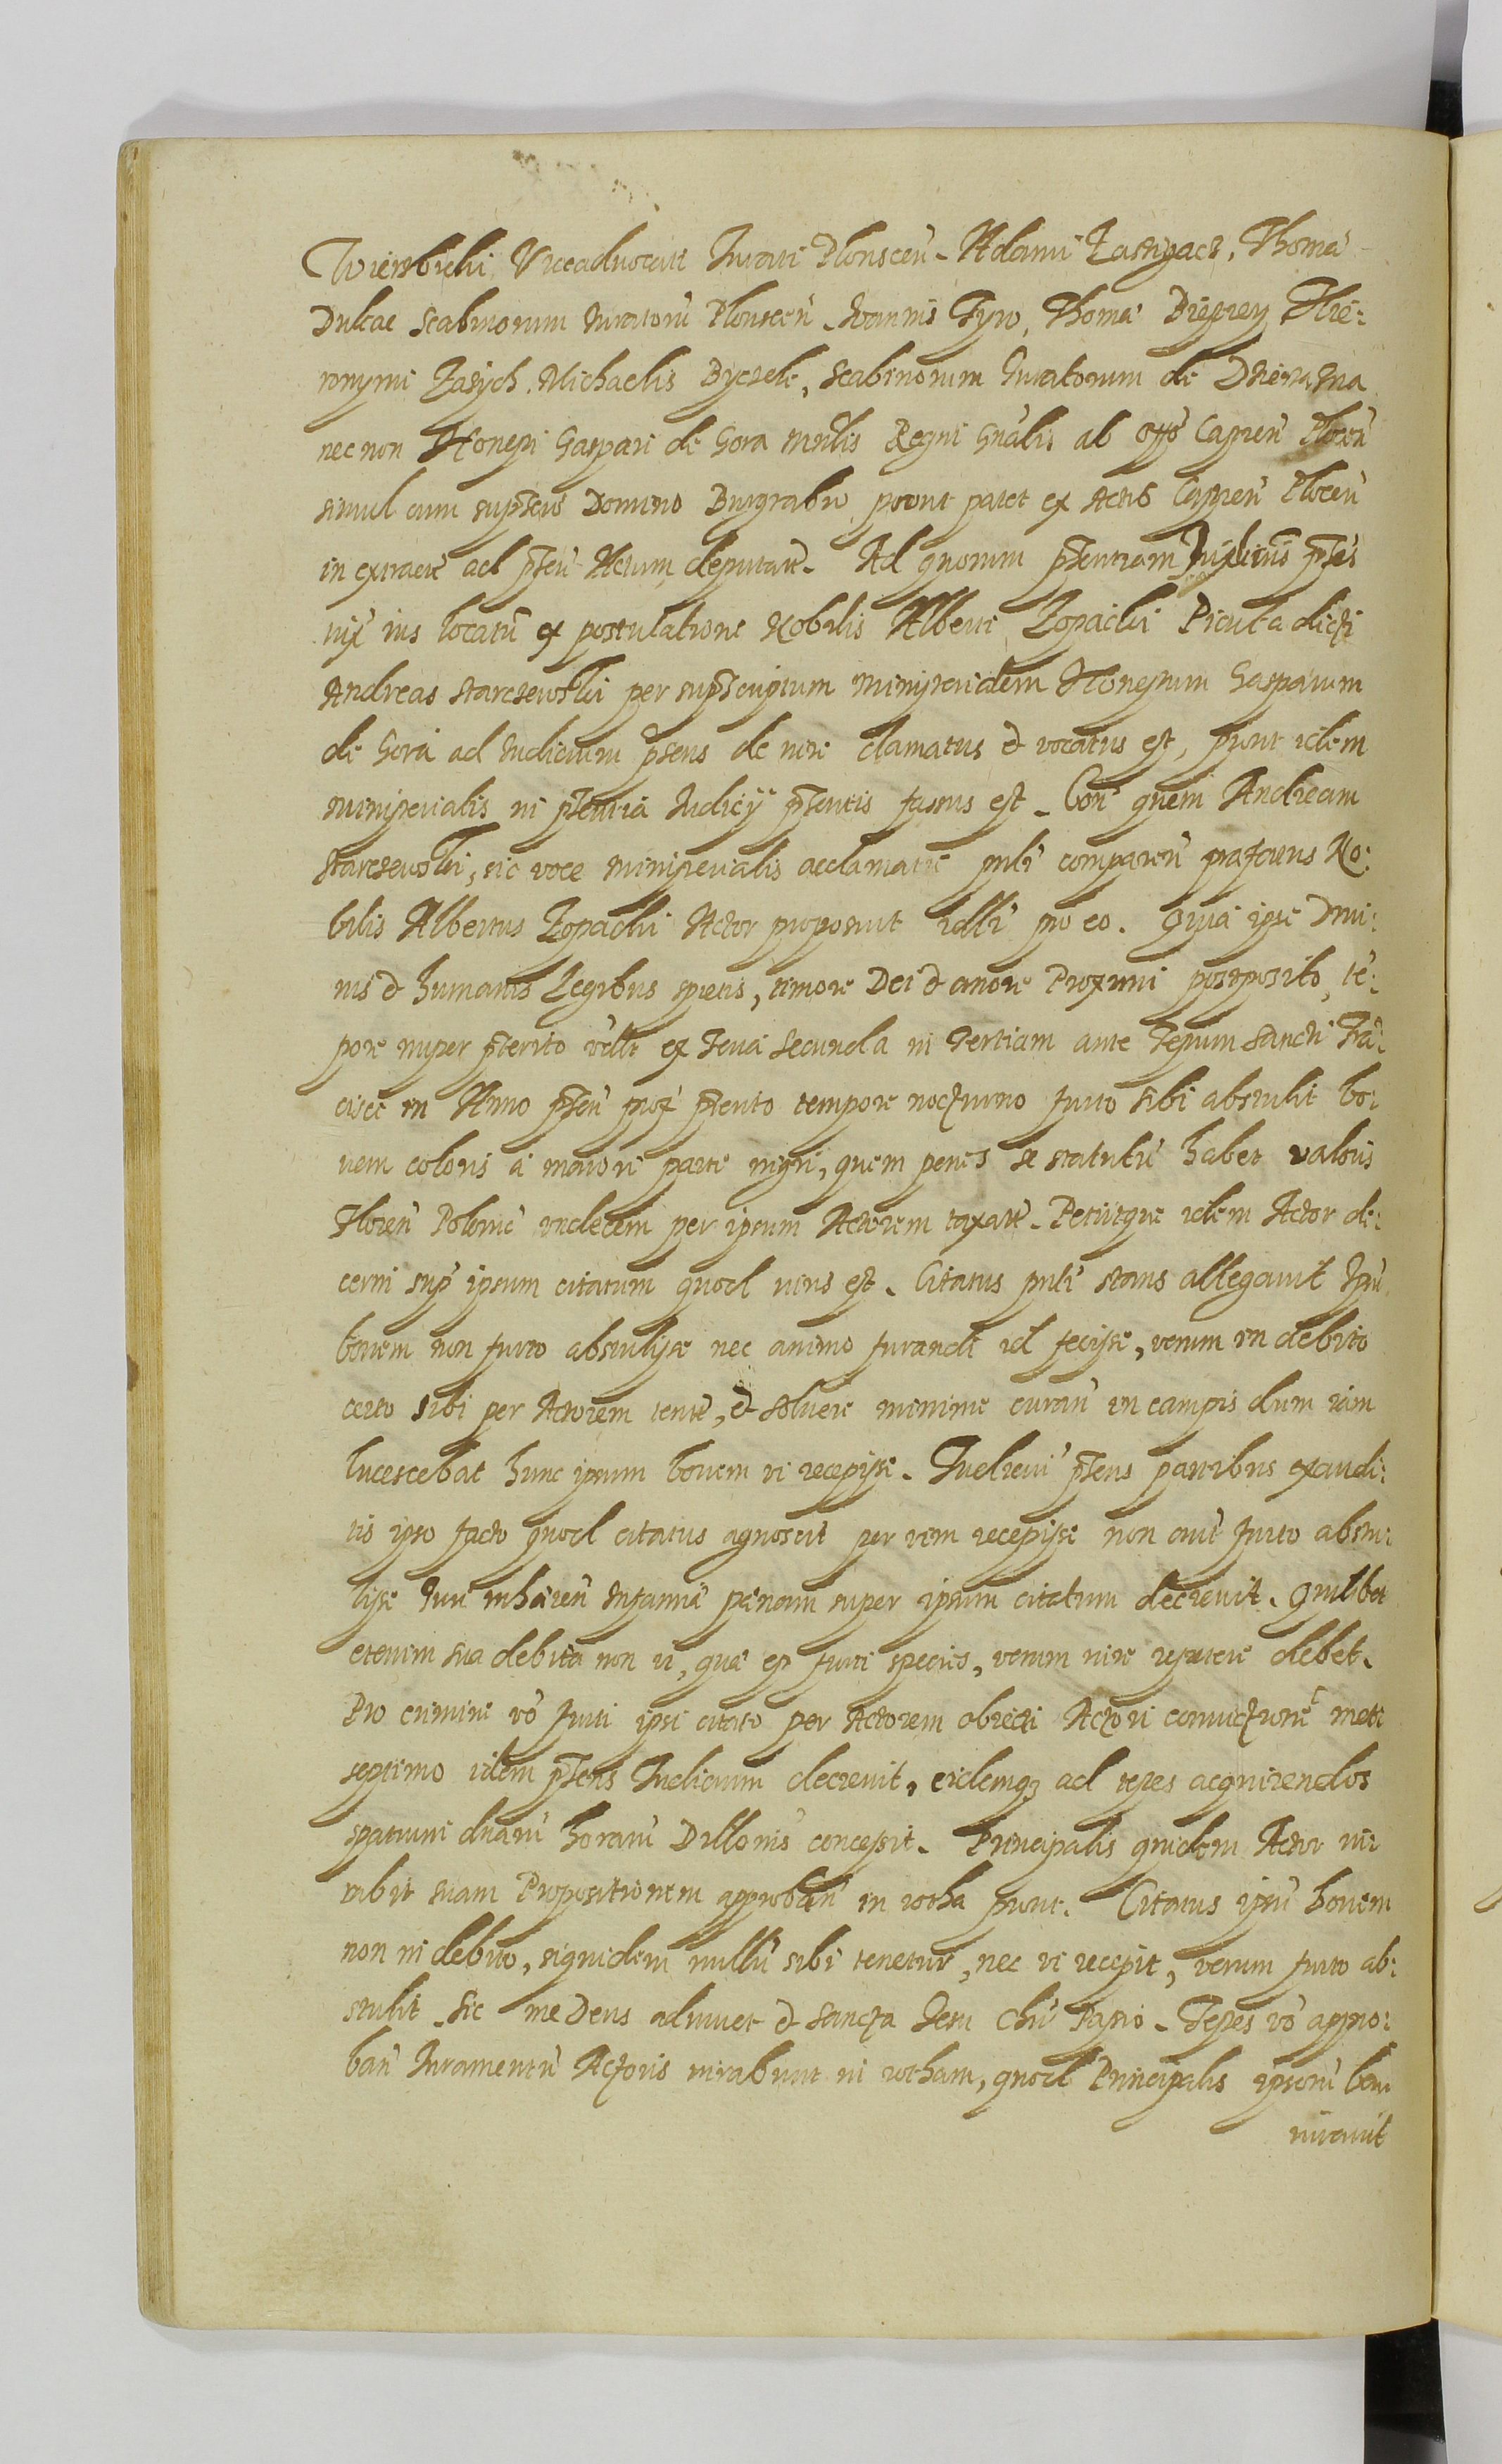 Wierzbicki Viceadvocati Jurati Plonscen̄. Adami Zastrzacz, Thomæ
Dulcae Scabinorum Juratorū Plonscen̄. Joannis Tyro, Thomæ Hie:
ronymi Zasÿch. Michaelis Byczek, Scabinorum Juratorum de
nec non Honesti Gaspari de Gora Regni Gnalis ab offo Capien̄ Plocen̄
simul cum supscto Domino Burgrabio, prout patet ex Actis Capien̄ Plocen̄
in extractu ad pn̄tem Actum deputate. Ad quorum pn̄tentiam Judiciū pn̄tēs
rix̄ ius locatū ex postulatione Nobilis Alberti Zopachi Picuta dicti
Andreas Starczewski per supscriptum ministerialem Honestum Gasparum
de Gora ad Judicium pn̄tens de iure clamatus et vocatus est, prout idem
ministerialis in pn̄tentia Judicij pn̄tentis fassus est. Con̄ quem Andream
Starczewski, sic voce ministerialis acclamatū pnlr̄ comparen̄ præfatus No:
bilis Albertus Zopachi Actor proposuit idlr̄ pro eo. Quia ipse Diui:
nis et humanis Legibus spretis, timore Dei et amore Proximi postposito, tē:
pore nuper pn̄terito vtlt̄ ex Feria Secunda in tertiam ante Festum Sancti Frā:
cisci in Anno pn̄ten̄ prox̄ pn̄terito tempore nocturno furto sibi abstulit bo:
uem coloris a maiori parte nigri, quem penes se statutū habet valoris
Floren̄ Polonic̄ undecem per ipsum Actorem taxatū. Petiitque idem Actor de:
cerni sup̄ ipsum citatum quod iuris est. Citatus pnlr̄ stans allegauit Ipsū
bouem non furto abstulisse nec animo furandi id fecisse, verum in debito
certo sibi per Actorem tentū, et soluere minime curan̄ in campis dum iam
lucescebat hunc ipsum bouem vi recepisse. Judiciū pn̄tens partibus exaudi:
tis ipso facto quod citatus agnoscit per vim recepisse non aut̄ furto abstu:
lisse Juri inhæren̄ Infamiæ pœnam super ipsum citatum decreuit. Quilibet
etenim sua debita non vi, quæ est furti species, verum iure repetere debet.
Pro crimine vō furti ipsi citato per Actorem obiecti Actori conuictionē mett
septimo idem pn̄tens Judicium decreuit, eidemqꝫ ad testes acquirendos
spatium duarū horarū Dillonis concessit. Principalis quidem Actor iu:
rabit suam Propositionem approban̄ in rotha prout. Citatus ipsū bouem
non in debito, siquidem nullū sibi tenetur, nec vi recepit, verum furto ab:
stulit. Sic me Deus adiuuet et Sancta Jesu Chri Passio. Testes vō appro:
ban̄ Juramentū Actoris iurabunt in rotham, quod Principalis ipsorū bene
iurauit